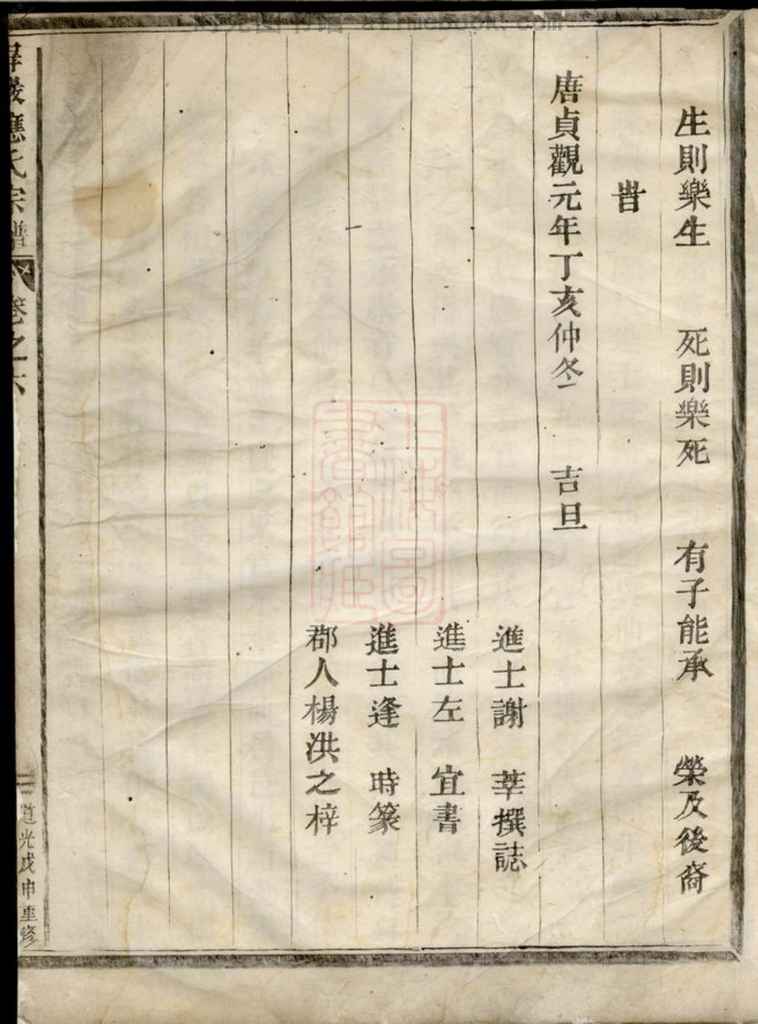 生則樂生　死則樂死　有子能承　榮及後裔
旹
唐貞觀元年丁亥仲冬　吉旦
進士謝　莘撰誌
進士左　宜書
進士逢　時篆
郡人楊洪之梓
應氏宗譜　卷之六　二　道光戊申重修